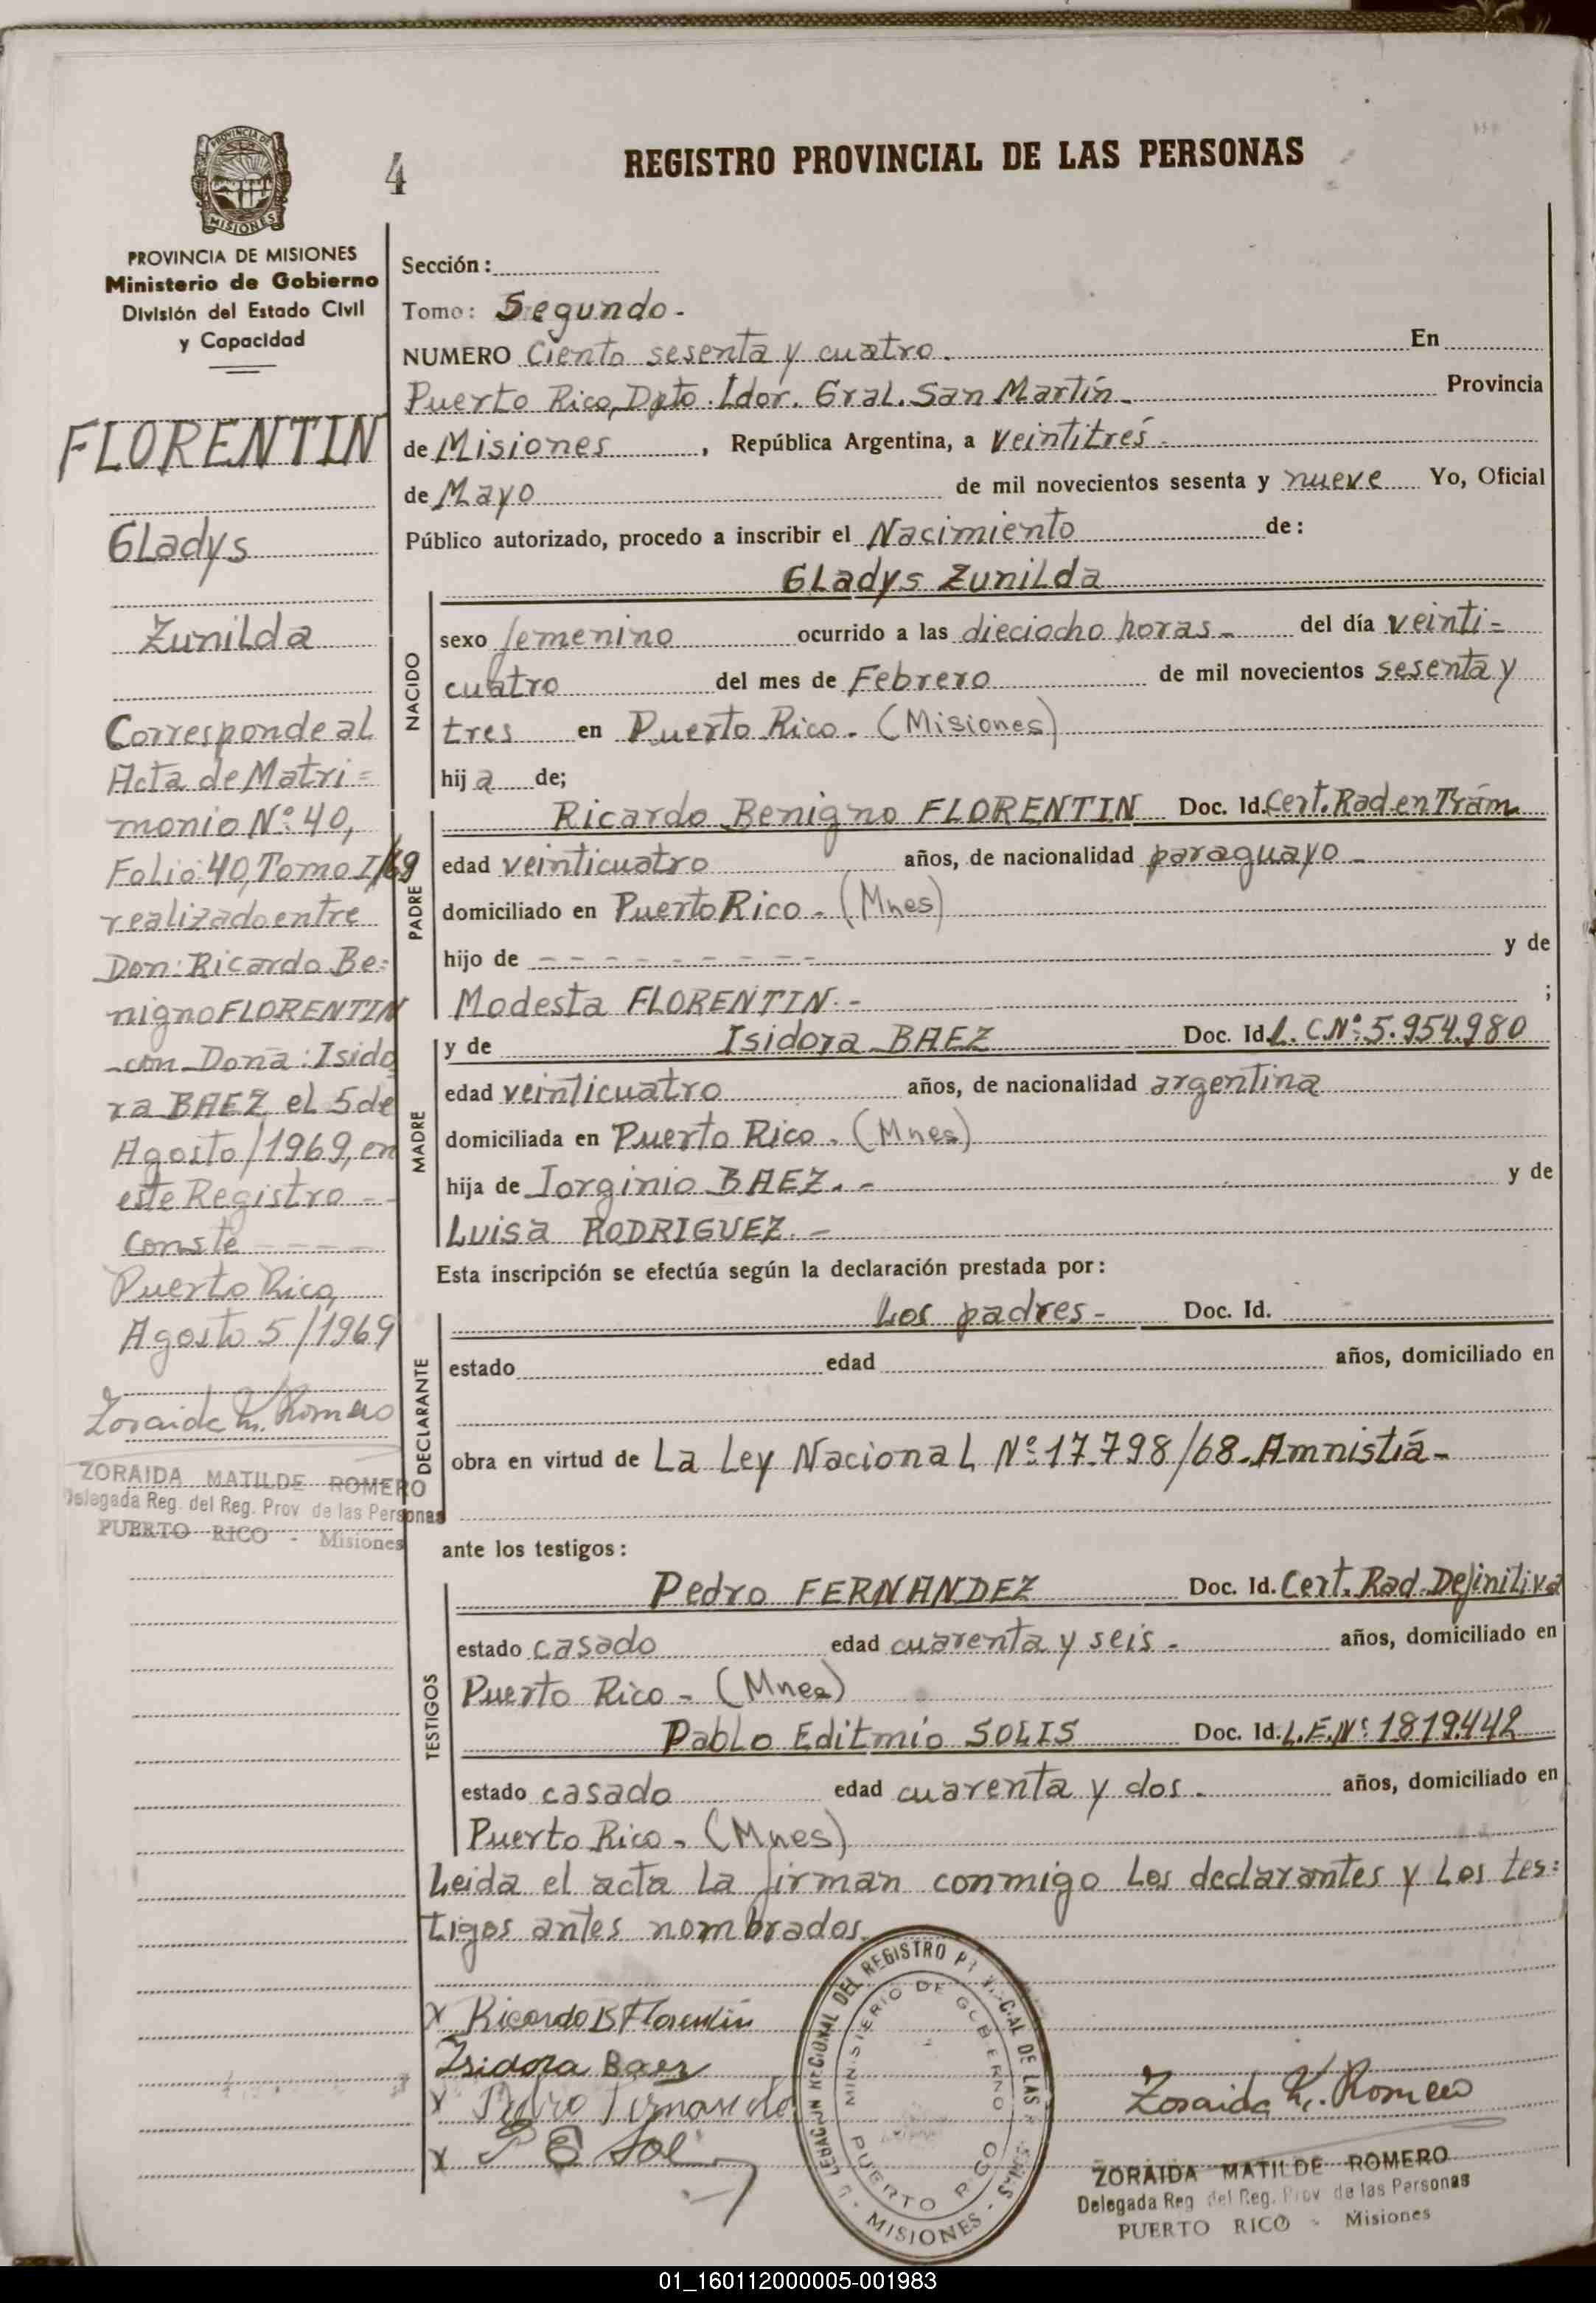 REGISTRO PROVINCIAL DE LAS PERSONAS
4
PROVINCIA DE
MISIONES
PROVINCIA DE MISIONES
Ministerio de Gobierno
División del Estado Civil
y Capacidad
FLORENTIN
Gladys
Zunilda
Corresponde al
Acta de Matri=
monio Nº 40,
Folio 40, Tomo I/69
realizado entre
Don: Ricardo Be=
nigno FLORENTIN
con Doña: Isido
ra BAEZ el 5 de
Agosto/1969, en
este Registro - -
Conste - - - -
Puerto Rico,
Agosto 5/1969
Zoraida M. Romero
ZORAIDA MATILDE ROMERO
Delegada Reg. del Reg. Prov de las Personas
PUERTO RICO - Misiones
Sección:
Tomo: Segundo.-
NUMERO Ciento sesenta y cuatro. En
Puerto Rico, Dpto. Ldor. Gral. San Martín.- Provincia
de Misiones, República Argentina, a veintitrés-
de Mayo de mil novecientos sesenta y nueve Yo, Oficial
Público autorizado, procedo a inscribir el Nacimiento de:
Gladys Zunilda
NACIDO
sexo femenino ocurrido a las dieciocho horas.- del día veinti=
cuatro del mes de Febrero de mil novecientos sesenta y
tres en Puerto Rico. (Misiones)
hija de;
PADRE
Ricardo Benigno FLORENTIN Doc. Id. Cert. Rad en Trám
edad veinticuatro años, de nacionalidad paraguayo -
domiciliado en Puerto Rico - (Mnes)
hijo de - - - - - - - - - y de
Modesta FLORENTIN.- ;
MADRE
y de Isidora BAEZ Doc. Id L. C Nº: 5.954.980
edad veinticuatro años, de nacionalidad argentina
domiciliada en Puerto Rico. (Mnes)
hija de Iorginio BAEZ.- y de
Luisa RODRIGUEZ.-
Esta inscripción se efectúa según la declaración prestada por:
DECLARANTE
Los padres- Doc. Id.
estado edad años, domiciliado en
obra en virtud de La Ley Nacional Nº 17.798/68-Amnistiá-
ante los testigos:
TESTIGOS
Pedro FERNANDEZ Doc. Id. Cert. Rad. Definitiva
estado casado edad cuarenta y seis - años, domiciliado en
Puerto Rico - (Mnes)
Pablo Editmio SOLIS Doc. Id. L.E.Nº: 1819.442
estado casado edad cuarenta y dos - años, domiciliado en
Puerto Rico - (Mnes)
Leida el acta la firman conmigo los declarantes y los tes=
tigos antes nombrados.
X Ricardo B Florentín
Isidora Baez
X Pedro Fernandez
X P E Sol
DEL REGISTRO DE LAS
MINISTERIO DE GOBIERNO
PUERTO RICO
- MISIONES -
Zoraida M. Romero
ZORAIDA MATILDE ROMERO
Delegada Reg del Reg. Prov de las Personas
PUERTO RICO - Misiones
01_160112000005-001983